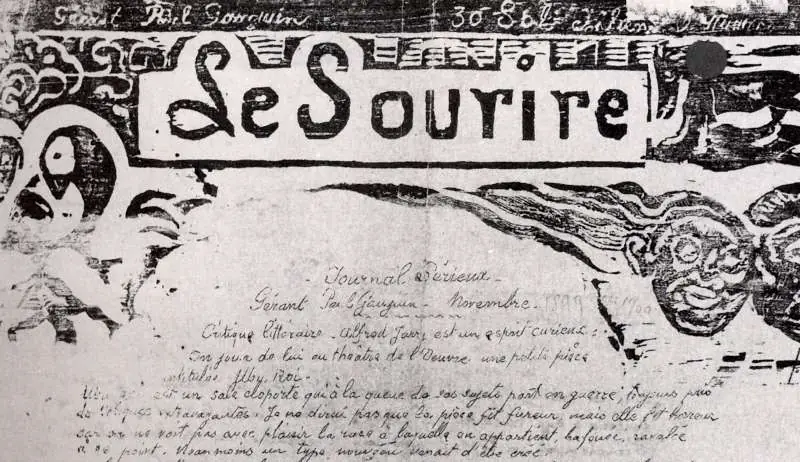 Gérant Paul Gauguin 30 Ex
Le Sourire
- Journal Sérieux -
Gérant Paul Gauguin - Novembre.
Critique littéraire. Alfred Jarry est un esprit curieux:
On joua de lui au théâtre de l'Oeuvre une petite pièce
intitulée Uby-Roi.
est un sale cloporte qui à la queue de ses sujets part en guerre, toujours
de coliques extravagantes. Je ne dirai pas que la pièce fit fureur, mais elle fit horreur
car on ne voit pas avec plaisir la race à laquelle on appartient, bafouée, ravalée
à ce point. Néanmoins un type nouveau venait d'être créé.